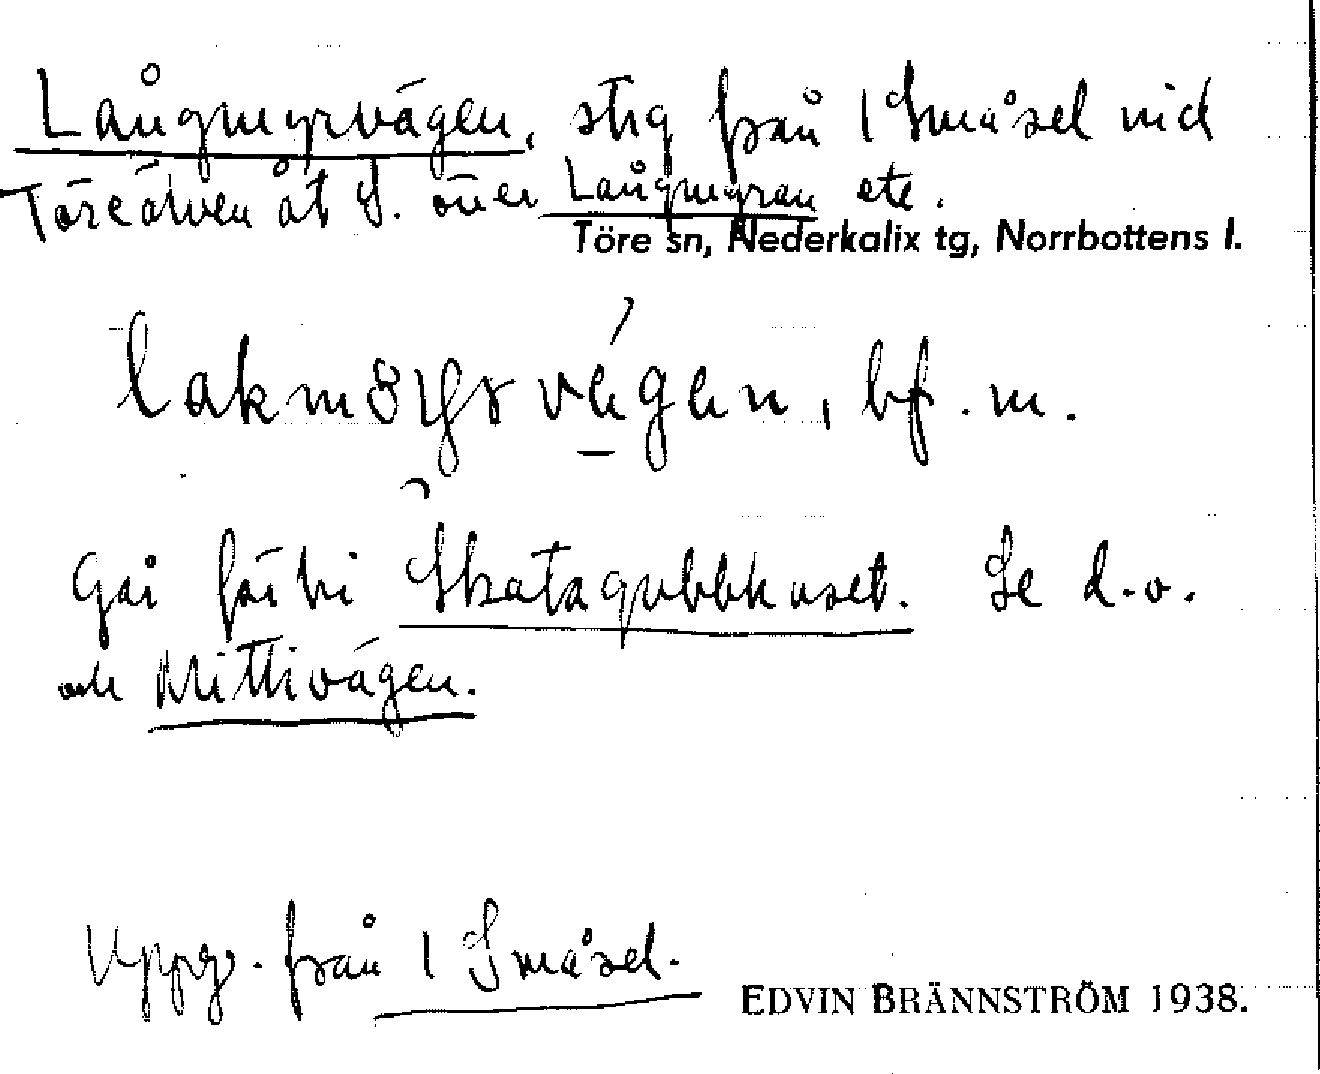 Långmyrvägen, stig från 1 Småsel vid
Töreälven åt S. över Långmyran etc.
Töre sn, Nederkalix tg, Norrbottens l.
bf. m.
Går förbi Skatagubbkuset. Se d.o.
och Mittivägen.
Uppg. från 1 Småsel.
EDVIN BRÄNNSTRÖM 1938.